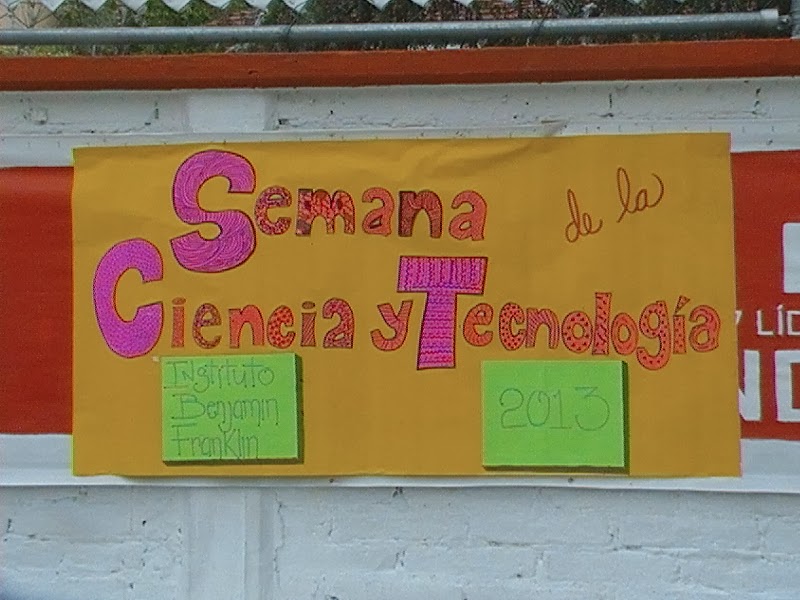 Semana de la
Ciencia y Tecnología
Instituto
Benjamin
Franklin
2013
Y LÍD
ND